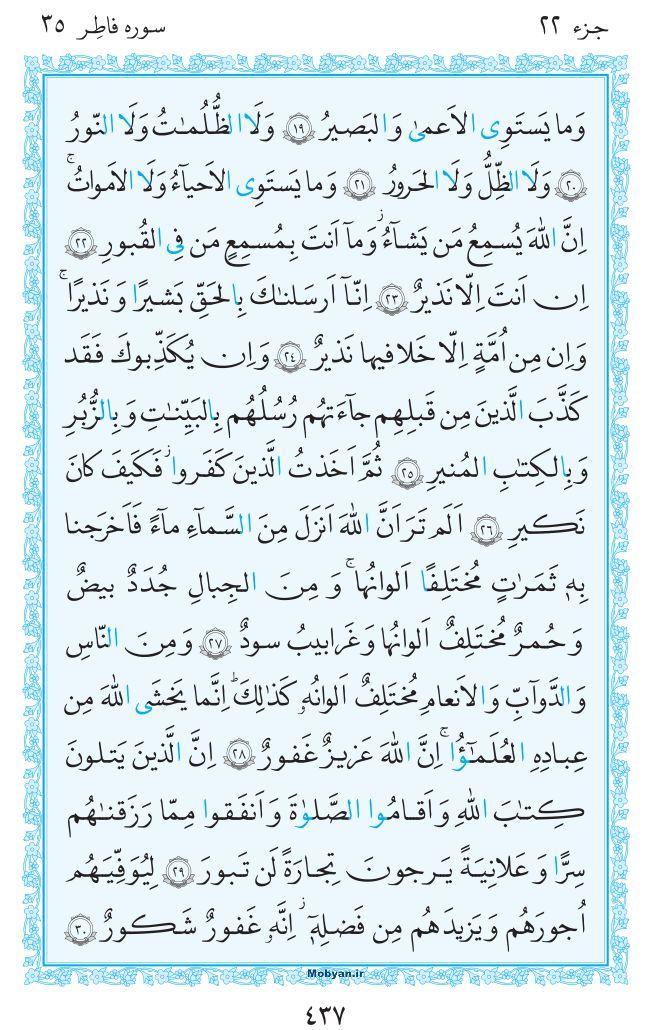 جزء ۲۲
سوره فاطِر ۳۵
وَما يَستَوِى الاَعمىٰ وَ البَصيرُ ﴿۱۹﴾ وَلَا الظُّلُمـٰتُ وَلَا النّورُ
﴿۲۰﴾ وَلَا الظِّلُّ وَلَا الحَرورُ ﴿۲۱﴾ وَما يَستَوِى الاَحياۤءُ وَلَا الاَمواتُ ۚ
اِنَّ اللهَ يُسمِعُ مَن يَشاۤءُ ۖ وَماۤ اَنتَ بِمُسمِعٍ مَن فِى القُبورِ ﴿۲۲﴾
اِن اَنتَ اِلّا نَذيرٌ ﴿۲۳﴾ اِنّاۤ اَرسَلنـٰكَ بِالحَقِّ بَشيرًا وَ نَذيرًا ۚ
وَاِن مِن اُمَّةٍ اِلّا خَلا فيها نَذيرٌ ﴿۲۴﴾ وَاِن يُكَذِّبوكَ فَقَد
كَذَّبَ الَّذينَ مِن قَبلِهِم جاۤءَتهُم رُسُلُهُم بِالبَيِّنـٰتِ وَ بِالزُّبُرِ
وَبِالكِتـٰبِ المُنيرِ ﴿۲۵﴾ ثُمَّ اَخَذتُ الَّذينَ كَفَروا ۖ فَكَيفَ كانَ
نَكيرِ ﴿۲۶﴾ اَلَم تَرَ اَنَّ اللهَ اَنزَلَ مِنَ السَّماۤءِ ماۤءً فَاَخرَجنا
بِهٖ ثَمَرٰتٍ مُختَلِفًا اَلوانُها ۚ وَ مِنَ الجِبالِ جُدَدٌ بيضٌ
وَ حُمرٌ مُختَلِفٌ اَلوانُها وَ غَرابيبُ سودٌ ﴿۲۷﴾ وَ مِنَ النّاسِ
وَالدَّوآبِّ وَالاَنعامِ مُختَلِفٌ اَلوانُهٗ كَذٰلِكَ ۗ اِنَّما يَخشَى اللهَ مِن
عِبادِهِ العُلَمـٰۤؤُا ۗ اِنَّ اللهَ عَزيزٌ غَفورٌ ﴿۲۸﴾ اِنَّ الَّذينَ يَتلونَ
كِتـٰبَ اللهِ وَ اَقامُوا الصَّلوٰةَ وَ اَنفَقوا مِمّا رَزَقنـٰهُم
سِرًّا وَ عَلانِيَةً يَرجونَ تِجارَةً لَن تَبورَ ﴿۲۹﴾ لِيُوَفِّيَهُم
اُجورَهُم وَ يَزيدَهُم مِن فَضلِهٖۤ ۚ اِنَّهٗ غَفورٌ شَكورٌ ﴿۳۰﴾
Mobyan.ir
۴۳۷